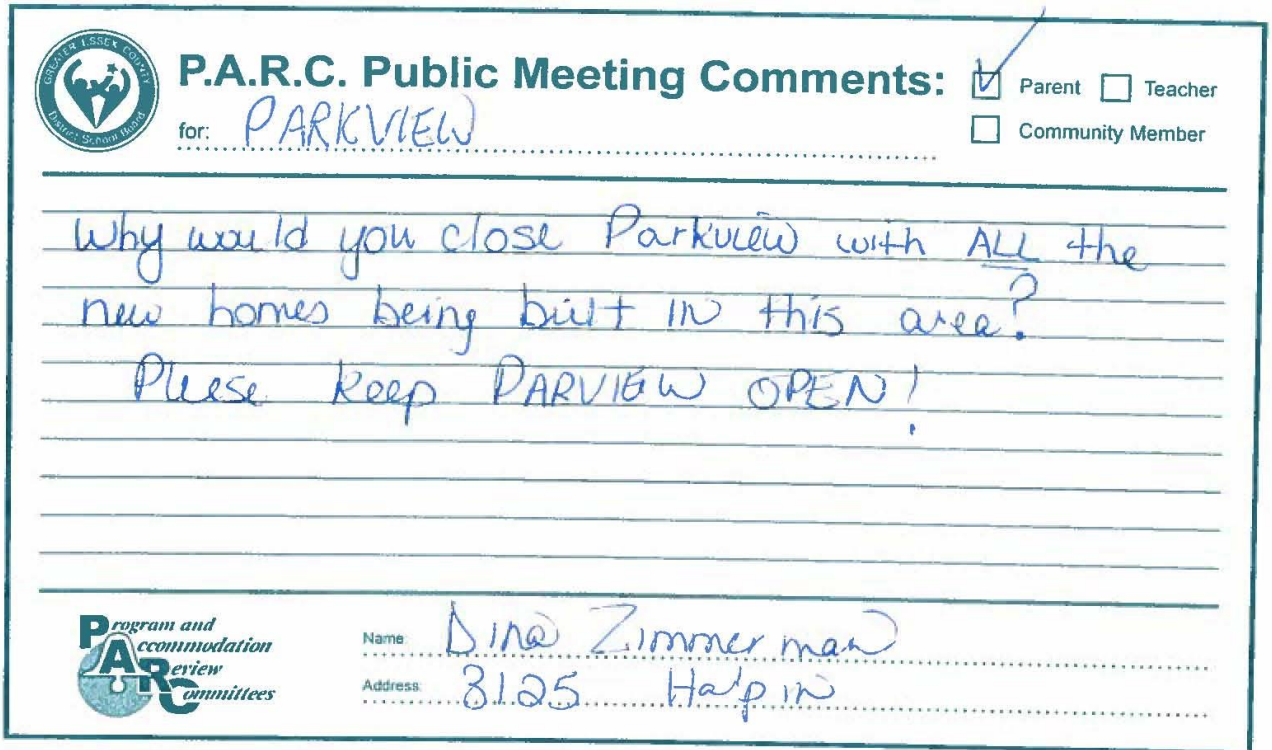 GREATER ESSEX COUNTY
District School Board
P.A.R.C. Public Meeting Comments:
Parent
Teacher
for: PARKVIEW
Community Member
Why would you close Parkview with ALL the
new homes being built IN this area?
Please keep PARVIEW OPEN!
Program and
Accommodation
Review
Committees
Name: Dina Zimmerman
Address: 3125 Halpin